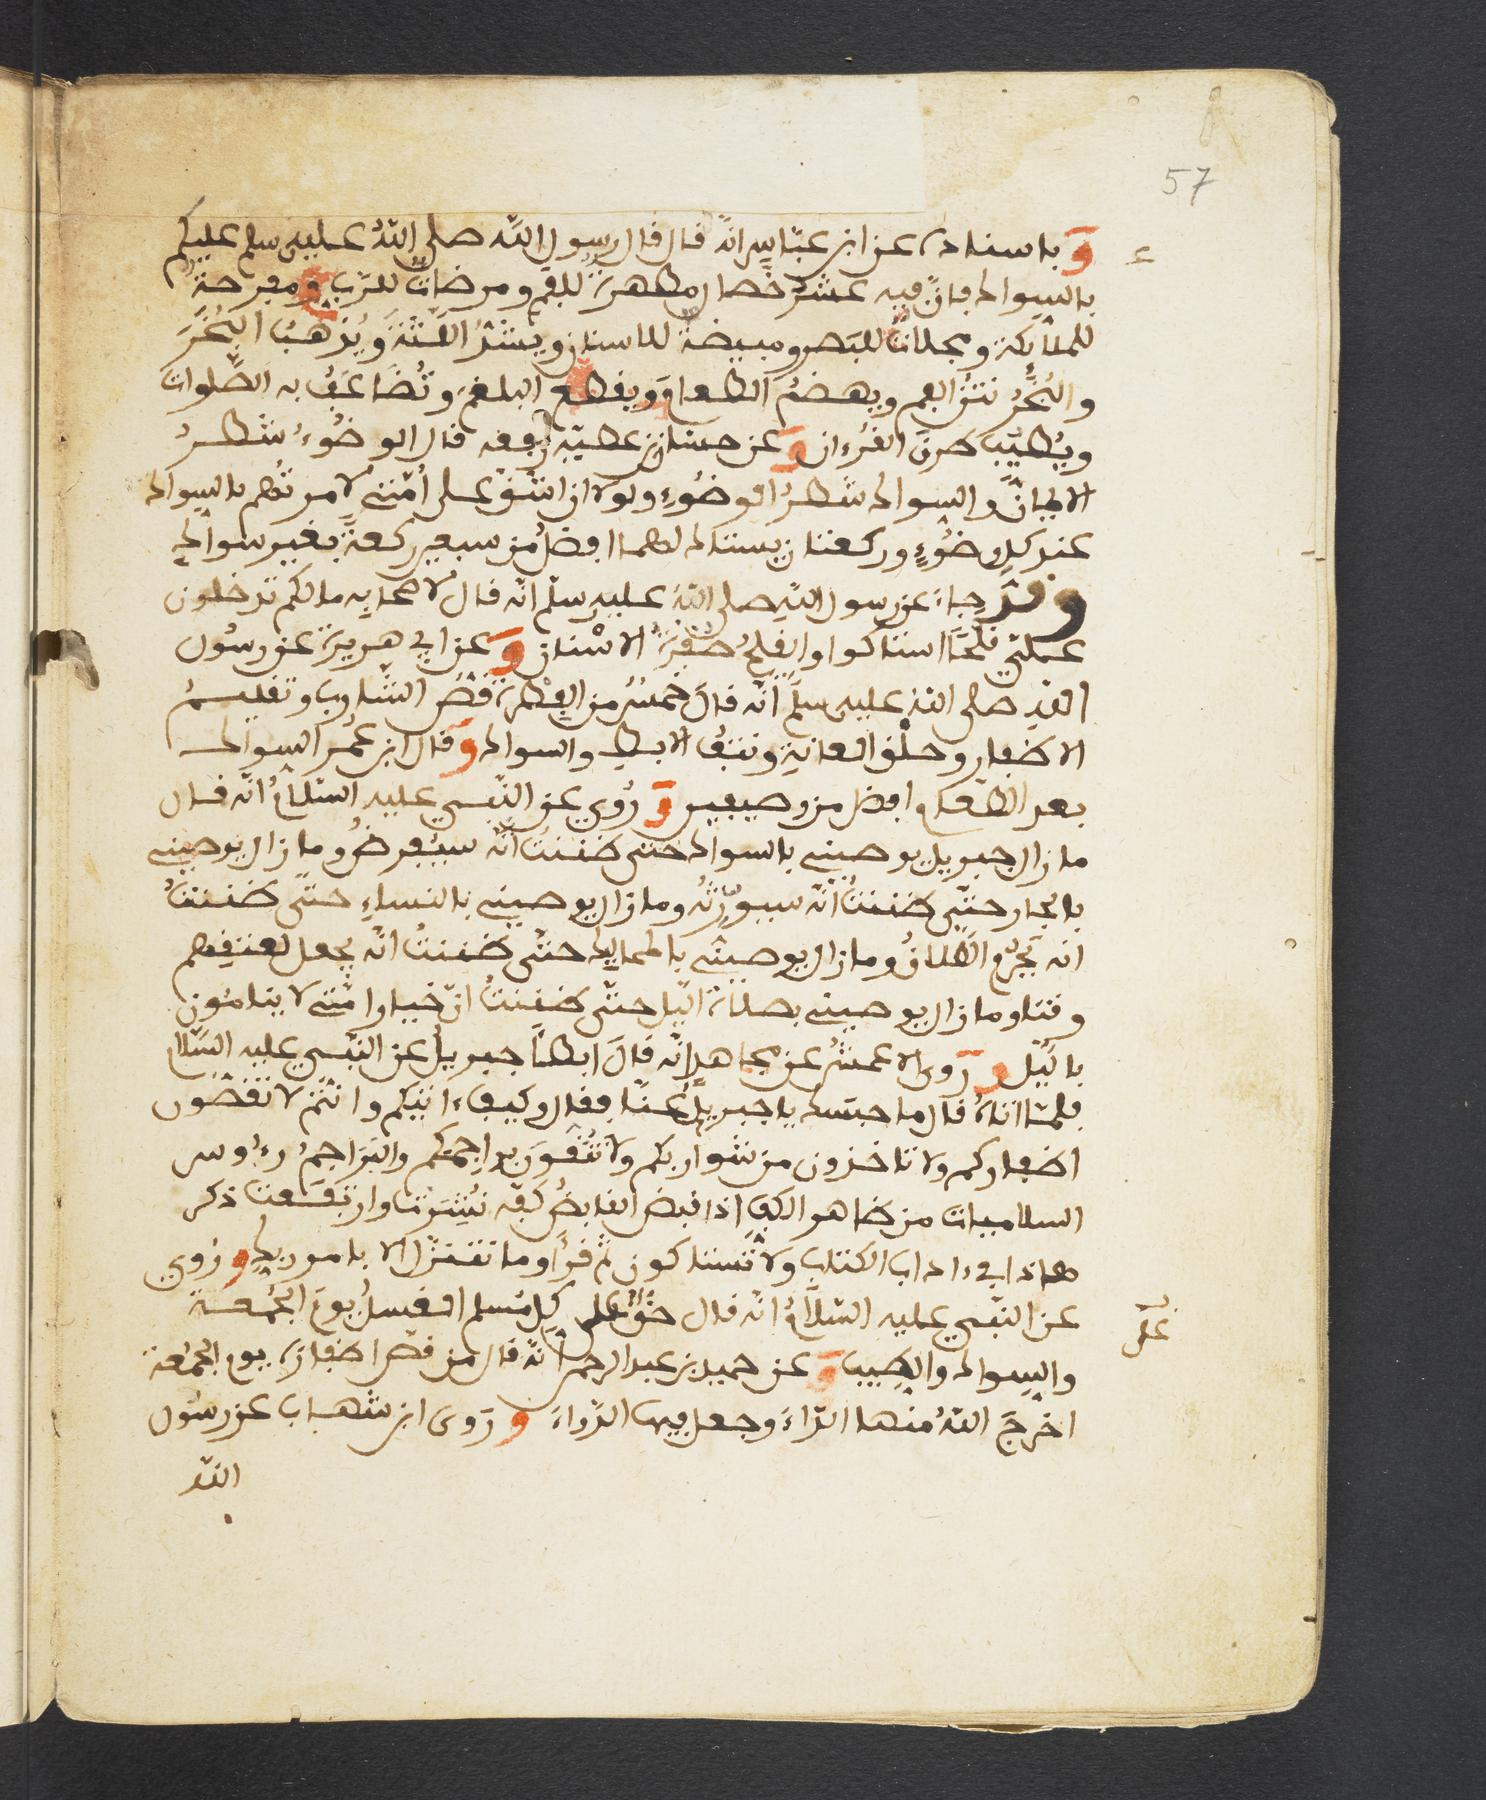 57
وباسناده عن ابن عبّاس انّه قال قال رسول الله صلى الله عليه وسلم عليكم
بالسواك فانّ فيه عشر خصال مطهرة للفم ومرضات للرب ومفرحة
للملائكة ومجلات للبصر ومبيضة للاسنان ويشدّ اللثة ويذهب البخر
والبخر نتن الفم ويهضم الطعام ويقطع البلغم وتضاعف به الصلوات
ويطيّب طرق القرءان وعن حسّان بن عطيّة رفعه قال الوضوء شطر
الايمان والسواك شطر الوضوء ولولا ان اشقّ على أمّتي لامرتهم بالسواك
عند كل وضوء وركعتان يستاك لهما افضل من سبعين ركعة بغير سواك
وقد جاء عن رسول الله صلى الله عليه وسلم انّه قال لاصحابه مالكم تدخلون
عليّ قلحا استاكوا والقلح صفرة الاسنان وعن ابي هريرة عن رسول
الله صلى الله عليه وسلم انّه قال خمس من الفطرة قصّ الشارب وتقليم
الاضفار وحلق العانة ونتف الابط والسواك وقال ابن عمر السواك
بعد الطعام افضل من وصيفين وروي عن النّبي عليه السّلام انّه قال
ما زال جبريل يوصيني بالسواك حتى ضننت انّه سيفرض وما زال يوصيني
بالجار حتّى ضننت انّه سيورّثه وما زال يوصيني بالنساء حتّى ضننت
انه يحرّم الطلاق وما زال يوصيني بالمماليك حتّى ضننت انّه يجعل لعتقهم
وقتا وما زال يوصيني بصلاة الّيل حتّى ضننت انّ خيار امّتي لا ينامون
بالّيل وروى الاعمش عن مجاهد انّه قال ابطأ جبريل عن النّبي عليه السّلام
فلمّا اتاه قال ما حبسك يا جبريل عنّا فقال وكيف ءاتيكم وانتم لا تقصّون
اضفاركم ولا تاخذون من شواربكم ولا تنقون براجمكم والبراجم رءوس
السلاميات من ضاهر الكف اذا قبض القابض كفّه نشزت وارتفعت ذكر
هاذا في ءاداب الكتاب ولا تستاكون ثم قرأ وما نتنزّل الا بامر ربك وروي
عن النّبي عليه السّلام انّه قال حقّ على كل مسلم الغسل يوم الجمعة
والسواك والطيب وعن حميد بن عبد الرحمن انّه قال من قصّ اضفاره يوم الجمعة
اخرج الله منها الدّاء وجعل فيها الدّواء وروى ابن شهاب عن رسول
الله